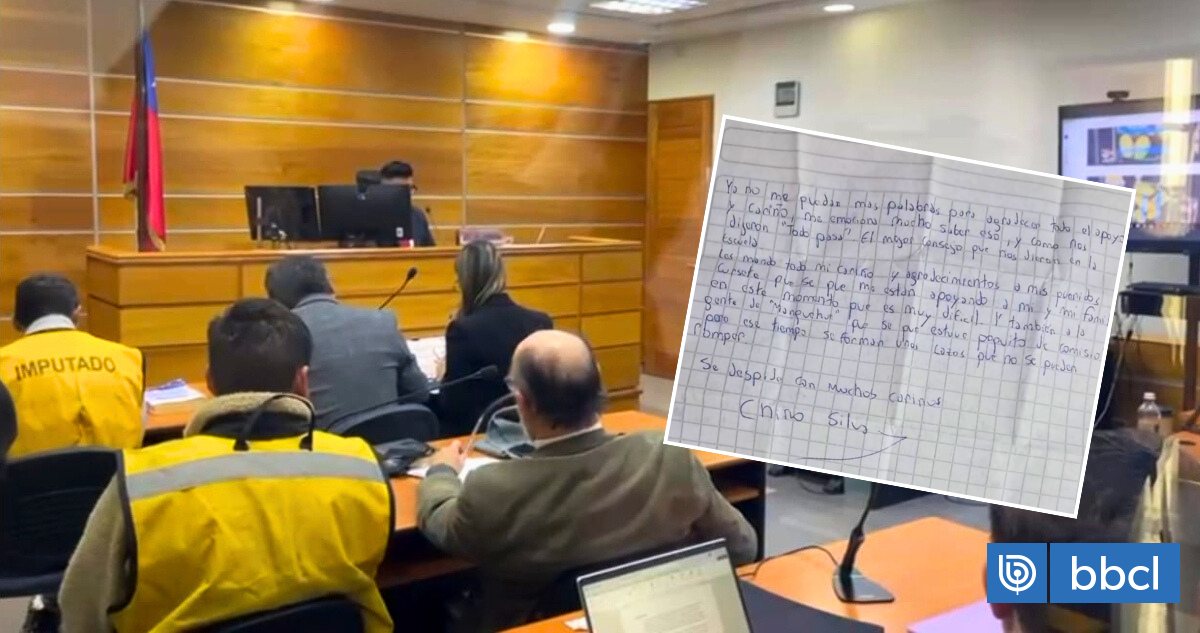 IMPUTADO
Ya no me puedan mas palabras para agradecer todo el apoyo
y cariño, me emociona mucho saber eso, y como nos
dijeron "Todo pasa". El mejor consejo que nos dieron en la
Escuela.
Les mando todo mi cariño y agradecimientos a mis queridos
que se que me están apoyando a mi y mi fami
en este momento que es muy dificil. Y también a la
gente de "Manquehue" que se que estuve poquito de comisio
pero ese tiempo se forman unos lazos que no se pueden
romper.
Se despide con muchos cariños
Chino Silva
bbcl